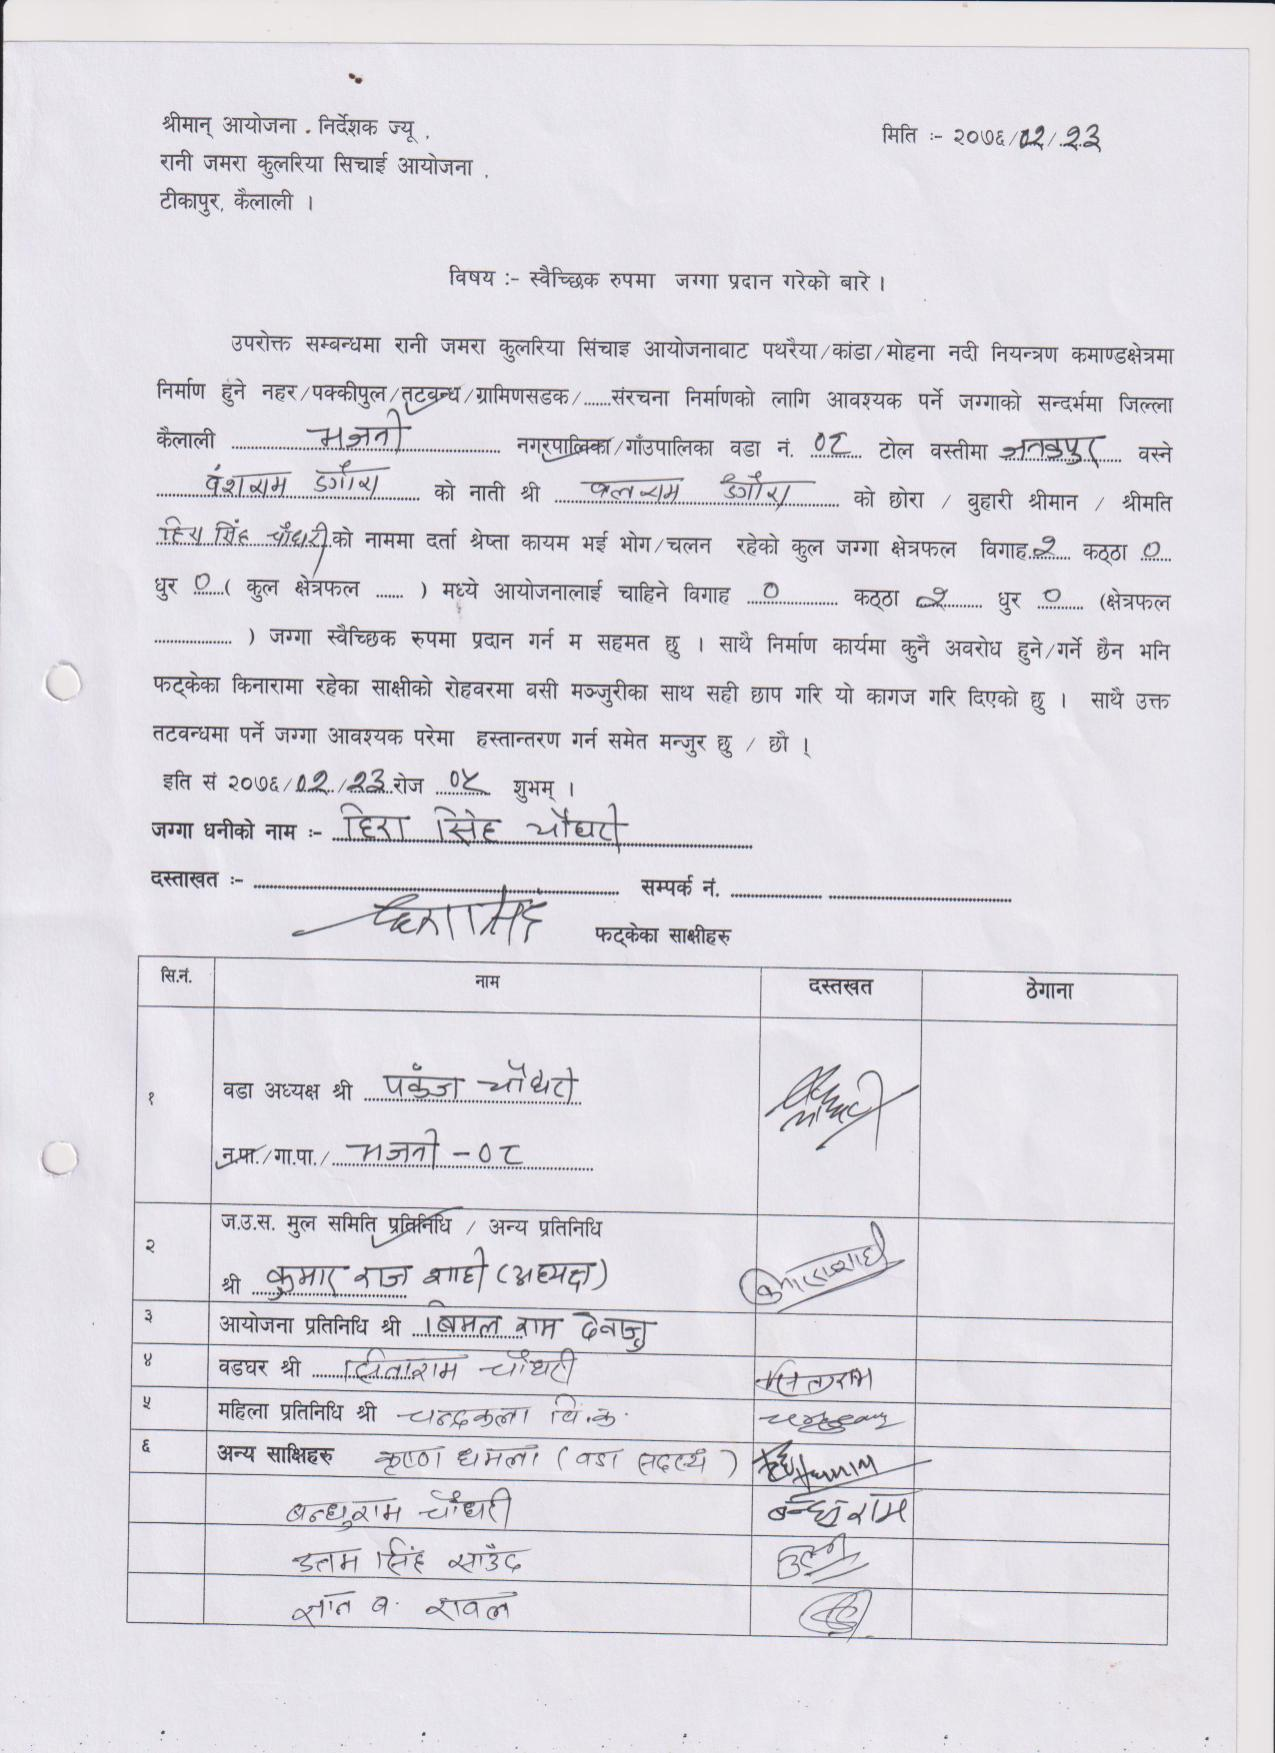 श्रीमान् आयोजना . निर्देशक ज्यू ,
मिति :- २०७६/०२/२३
रानी जमरा कुलरिया सिचाई आयोजना ,
टीकापुर, कैलाली ।
विषय :- स्वैच्छिक रुपमा जग्गा प्रदान गरेको बारे ।
उपरोक्त सम्बन्धमा रानी जमरा कुलरिया सिंचाइ आयोजनावाट पथरैया/कांडा/मोहना नदी नियन्त्रण कमाण्डक्षेत्रमा
निर्माण हुने नहर/पक्कीपुल/तटबन्ध/ग्रामिणसडक/......संरचना निर्माणको लागि आवश्यक पर्ने जग्गाको सन्दर्भमा जिल्ला
कैलाली भजनी नगरपालिका/गाँउपालिका वडा नं. ०८ टोल वस्तीमा जनकपुर वस्ने
वंशराम डगौरा को नाती श्री बलराम डगौरा को छोरा / बुहारी श्रीमान / श्रीमति
हिरा सिंह चौधरी को नाममा दर्ता श्रेष्ता कायम भई भोग/चलन रहेको कुल जग्गा क्षेत्रफल विगाह २ कठ्ठा ०
धुर ० ( कुल क्षेत्रफल ...... ) मध्ये आयोजनालाई चाहिने विगाह ० कठ्ठा २ धुर ० (क्षेत्रफल
.................. ) जग्गा स्वैच्छिक रुपमा प्रदान गर्न म सहमत छु । साथै निर्माण कार्यमा कुनै अवरोध हुने/गर्ने छैन भनि
फट्केका किनारामा रहेका साक्षीको रोहवरमा वसी मञ्जुरीका साथ सही छाप गरि यो कागज गरि दिएको छु । साथै उक्त
तटवन्धमा पर्ने जग्गा आवश्यक परेमा हस्तान्तरण गर्न समेत मन्जुर छु / छौ ।
इति सं २०७६/०२/२३ रोज ०५ शुभम् ।
जग्गा धनीको नाम :- हिरा सिंह चौधरी
दस्ताखत :- .................. सम्पर्क नं. ..................
हिरासिंह
फट्केका साक्षीहरु
सि.नं. नाम दस्तखत ठेगाना
१ वडा अध्यक्ष श्री पकंज चौधरी
न.पा./गा.पा./ भजनी -०८
२ ज.उ.स. मुल समिति प्रतिनिधि / अन्य प्रतिनिधि
श्री कुमार राज शाही (अध्यक्ष)
३ आयोजना प्रतिनिधि श्री बिमल राम देवाजु
४ वडघर श्री सिताराम चौधरी सिताराम
५ महिला प्रतिनिधि श्री चन्द्रकला वि.क.
६ अन्य साक्षिहरु कृष्ण धमला (वडा सदस्य)
बन्धुराम चौधरी बन्धुराम
उत्तम सिंह साउँद
सान ब. रावल